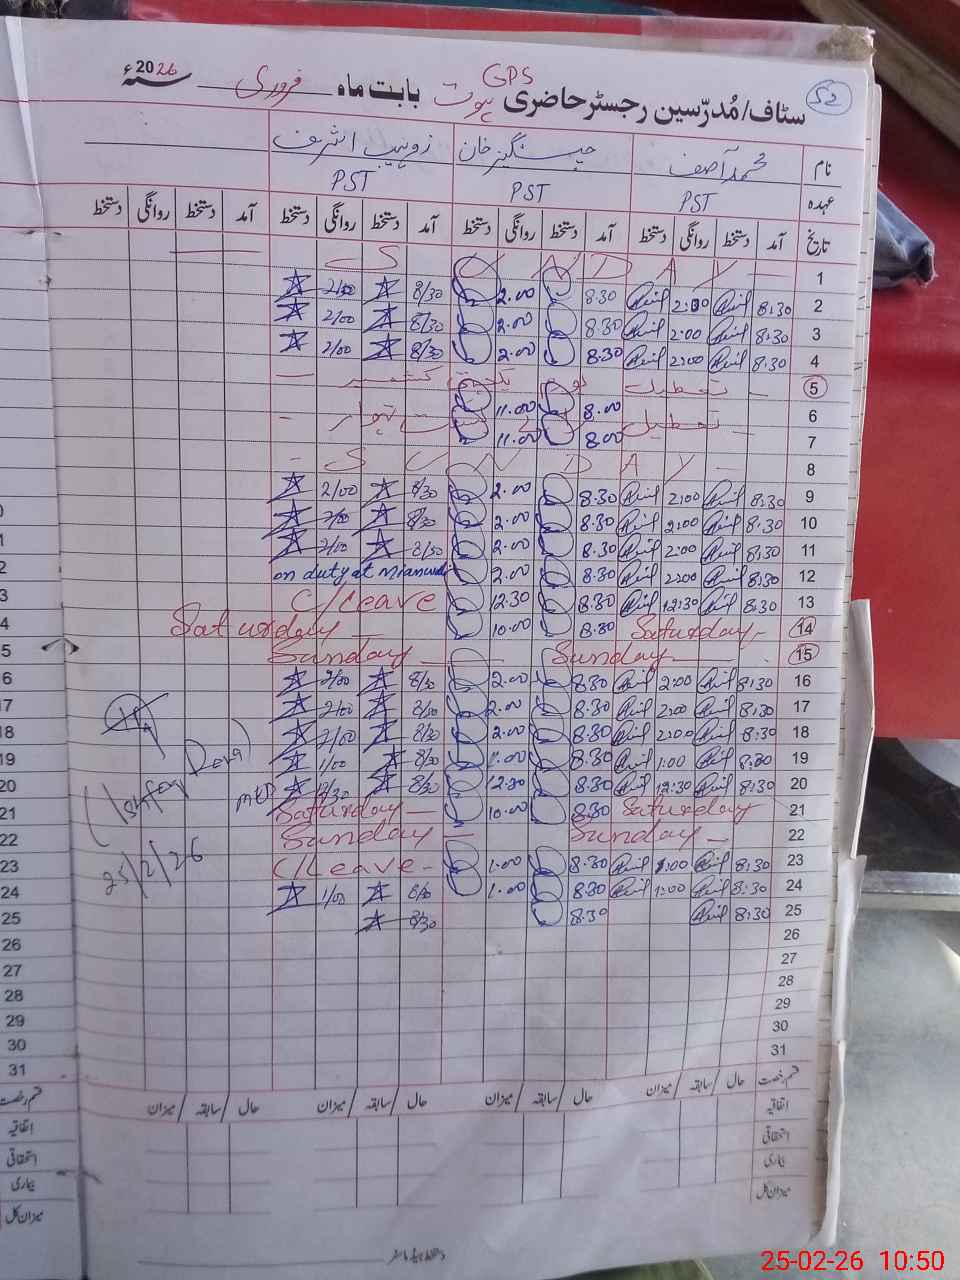 52
GPS
سٹاف/مُدرّسین رجسٹر حاضری ہوت بابت ماہ فروری 2026ء
نام محمد آصف چنگیز خان زوہیب اشرف
عہدہ PST PST PST
تاریخ آمد دستخط روانگی دستخط آمد دستخط روانگی دستخط آمد دستخط روانگی دستخط آمد دستخط روانگی دستخط
1 — S U N D A Y —
2 8:30 2:00 8.30 2.00 8/30 2/00
3 8:30 2:00 8.30 2.00 8/30 2/00
4 8:30 2:00 8.30 2.00 8/30 2/00
5 تعطیل یوم یکجہتی کشمیر —
6 8.00 11.00
7 تعطیل 8.00 11.00
8 — S U N D A Y —
9 8:30 2:00 8.30 2.00 8/30 2/00
10 8:30 2:00 8.30 2.00 8/30 2/00
11 8:30 2:00 8.30 2.00 8/30 2/00
12 8:30 2:00 8.30 2.00 on duty at
13 8:30 12:30 8.30 12.30 C/Leave
14 Saturday— 8.30 10.00 Saturday —
15 Sunday— Sunday —
16 8:30 2:00 8.30 2.00 8/30 2/00
17 8:30 2:00 8.30 2.00 8/30 2/00
18 8:30 2:00 8.30 2.00 8/30 2/00
19 8:30 1:00 8.30 1.00 8/30 1/00
20 8:30 12:30 8.30 12.30 8/30 12/30
21 Saturday 8.30 10.00 Saturday —
22 Sunday — Sunday —
23 8:30 1:00 8.30 1.00 C/Leave —
24 8:30 1:00 8.30 1.00 8/30 1/00
25 8:30 8.30 8/30
25/2/26
26
27
28
29
30
31
قسم رخصت حال/سابقہ/میزان حال/سابقہ/میزان حال/سابقہ/میزان
اتفاقیہ
استحقاقی
بیماری
میزان کل
25-02-26 10:50